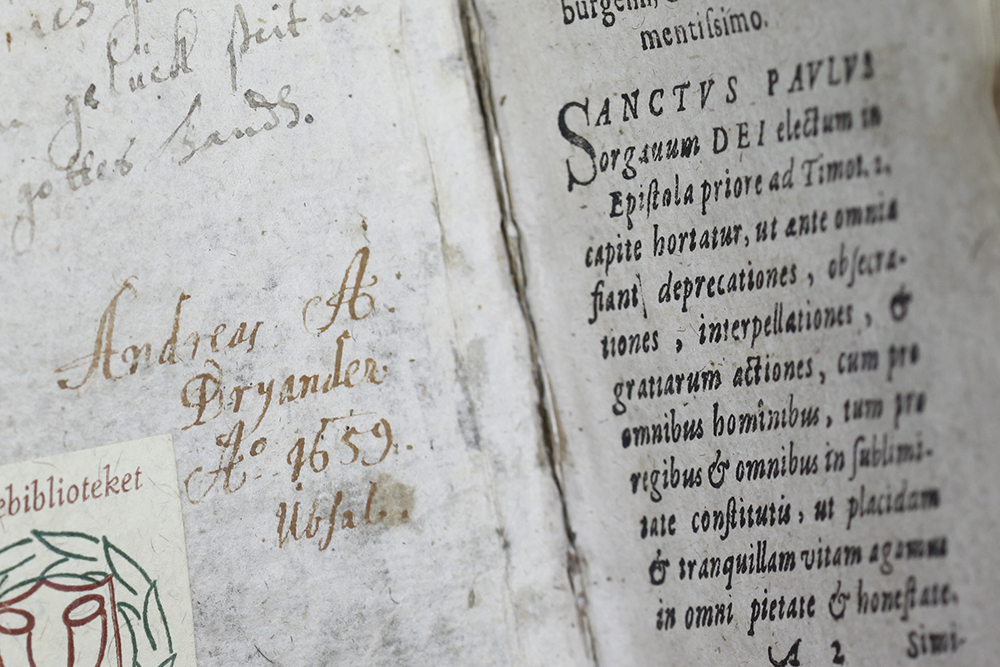 gelück steit in
gottes handt.
Andreas A:
Dryander
Aº 1659.
Ubsal.
ebiblioteket
mentiſsimo.
SANCTVS PAVLVS
Sorgauum DEI electum in
Epiſtola priore ad Timot. 2.
capite hortatur, ut ante omnia
fiant deprecationes, obſecra-
tiones, interpellationes, &
gratiarum actiones, cum pro
omnibus hominibus, tum pro
regibus & omnibus in ſublimi-
tate conſtitutis, ut placidam
& tranquillam vitam agamus
in omni pietate & honeſtate.
A 2 Simi-